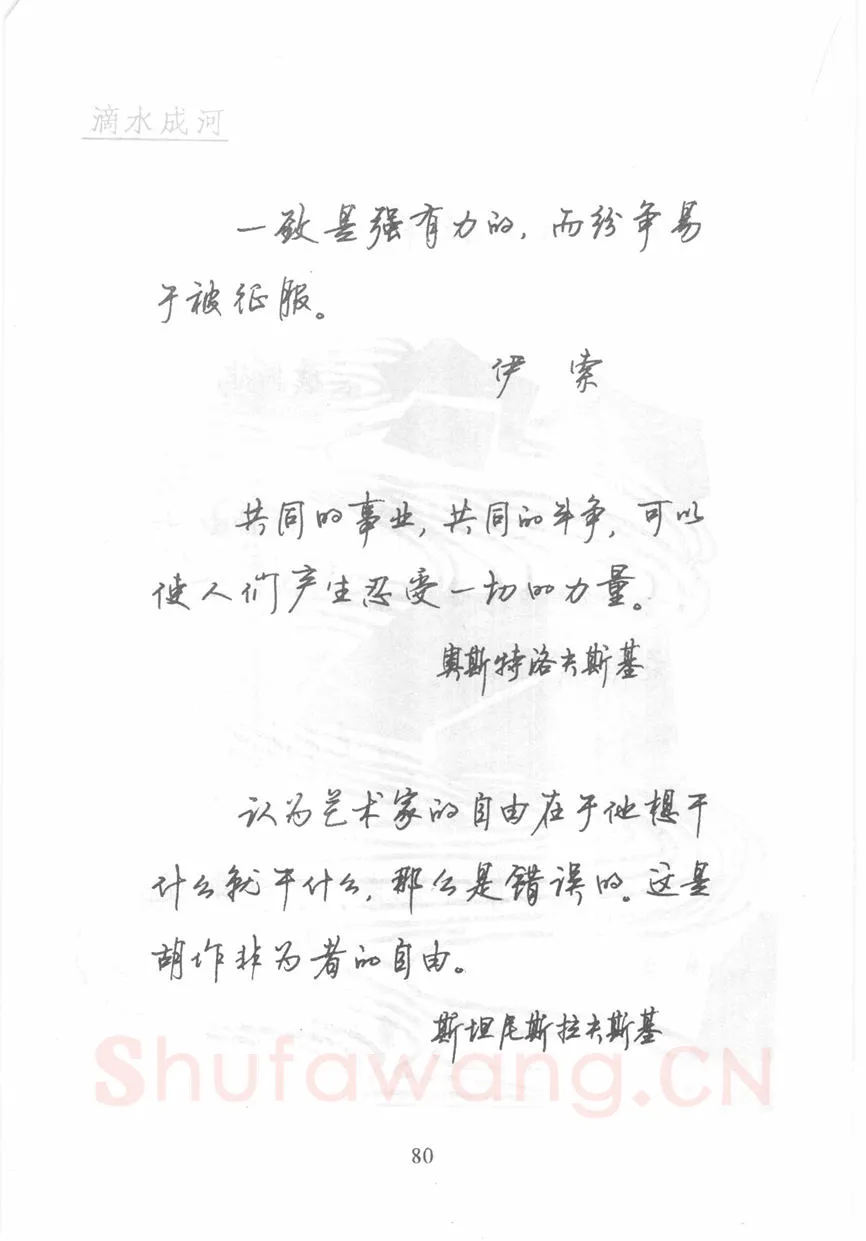 滴水成河
一致是强有力的，而纷争易
于被征服。
伊 索
共同的事业，共同的斗争，可以
使人们产生忍受一切的力量。
奥斯特洛夫斯基
认为艺术家的自由在于他想干
什么就干什么，那么是错误的。这是
胡作非为者的自由。
斯坦尼斯拉夫斯基
Shufawang.CN
80